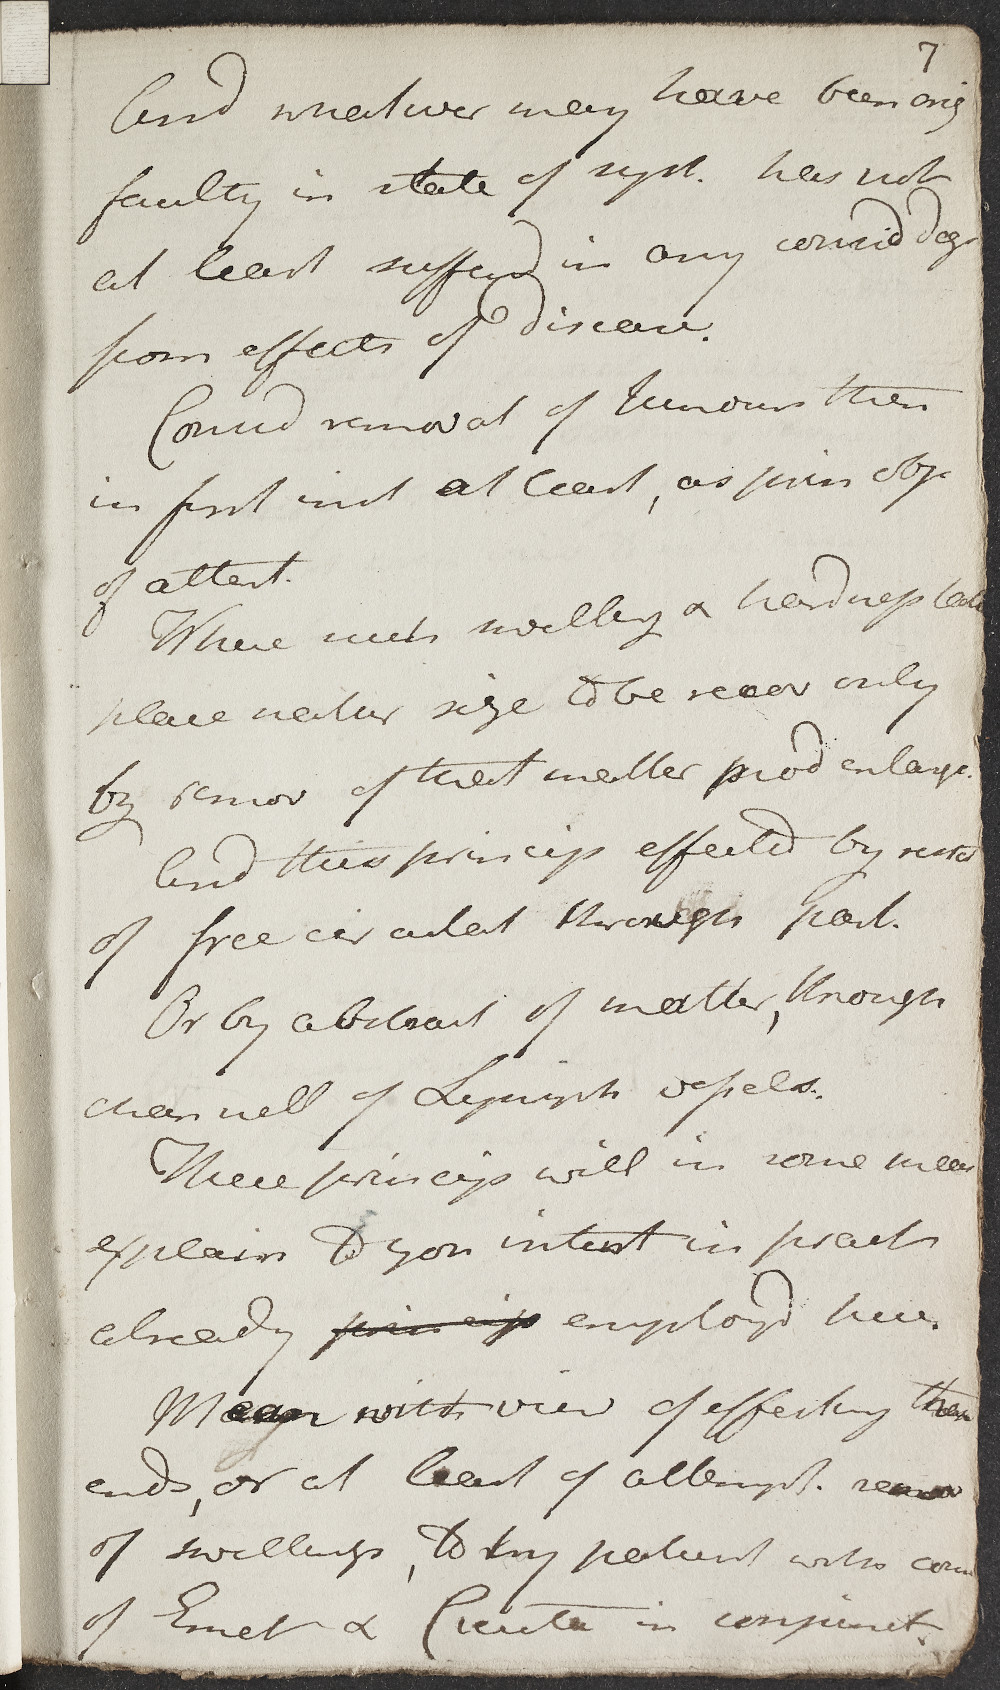 7
And whatever may have been orig
faulty in state of syst. has not
at least sufferd in any consid deg
from effects of disease.
Consid removal of tumours then
in first inst at least, as prin obje
of attent.
Where such swelling & hardness take
place natur size to be recov only
by remov of that matter prod enlarge.
And this princip effected by restor
of free circulat through part.
Or by abstract of matter, through
channell of Lymph vessels.
These princip will in some meas
explain to you intent in pract
already princip employd here.
Mean with view of effecting these
ends, or at least of attempt. remov
of swellings, to try patient with cours
of Emet & Cicuta in conjunct.